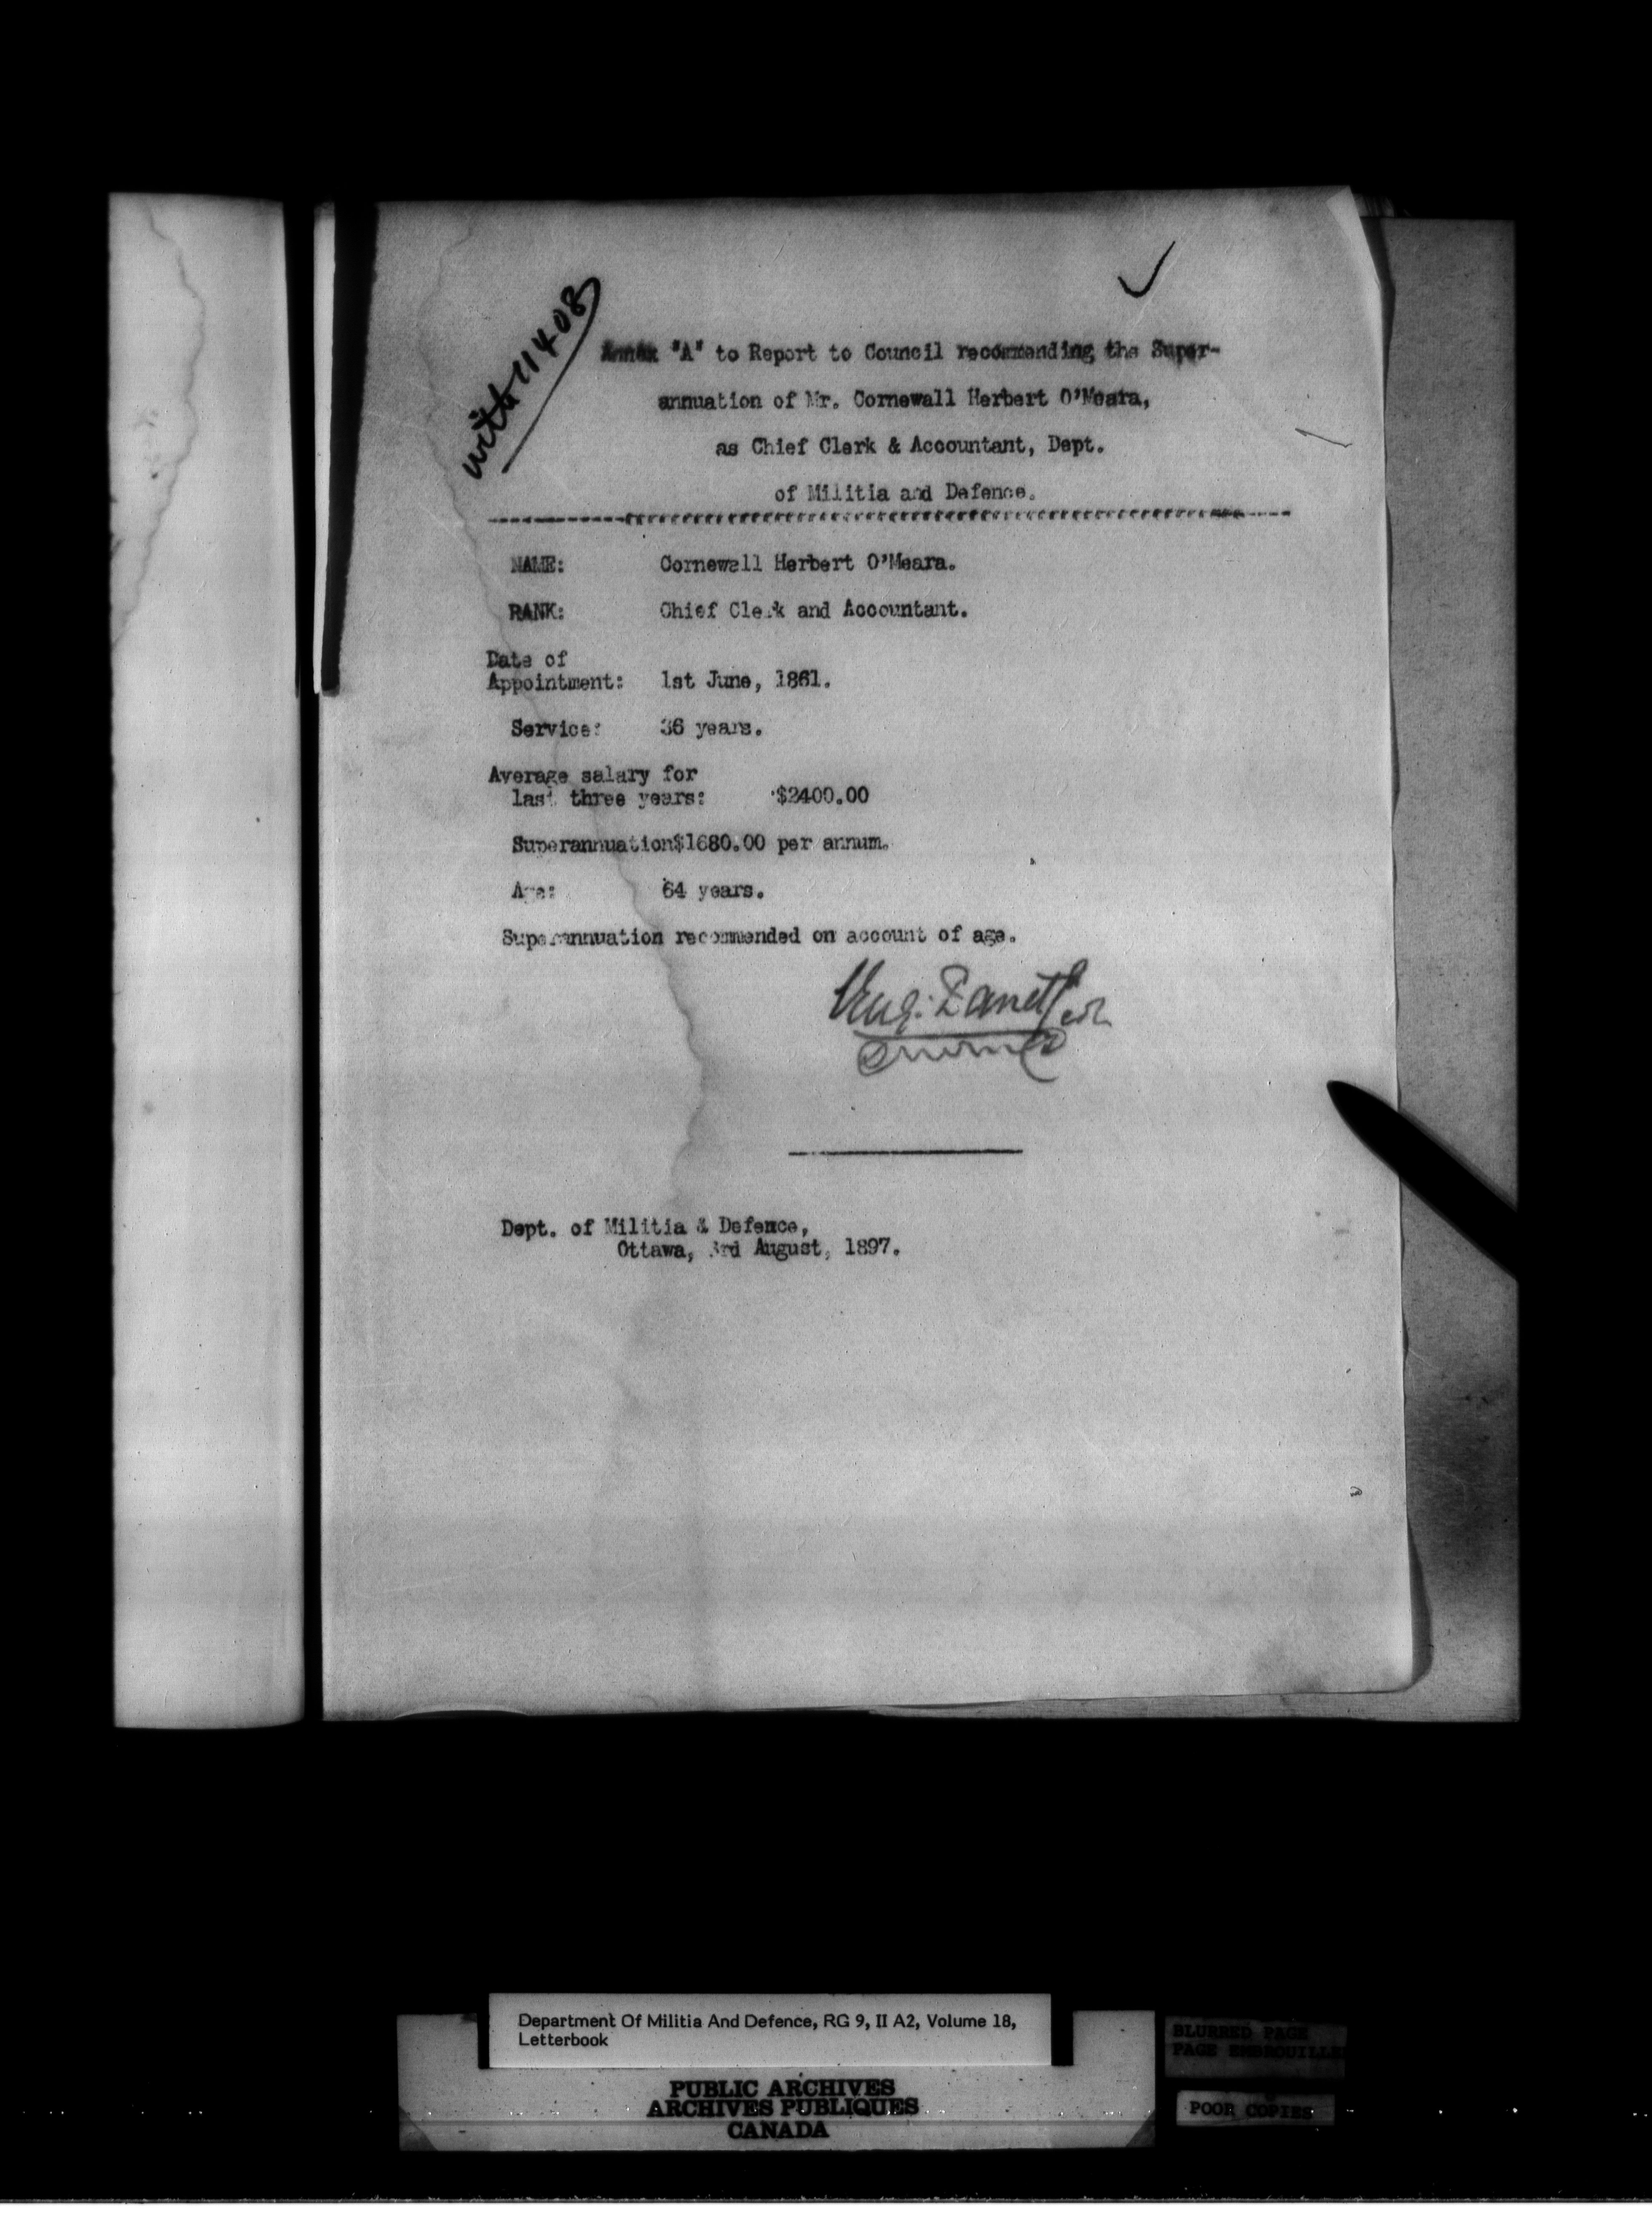 with 11408
Annex "A" to Report to Council recommending the Super-
annuation of Mr. Cornewall Herbert O'Meara,
as Chief Clerk & Accountant, Dept.
of Militia and Defence.
NAME: Cornewall Herbert O'Meara.
RANK: Chief Clerk and Accountant.
Date of
Appointment: 1st June, 1861.
Service: 36 years.
Average salary for
last three years: $2400.00
Superannuation$1680.00 per annum.
Age: 64 years.
Superannuation recommended on account of age.
Dept. of Militia & Defence,
Ottawa, 3rd August, 1897.
Department Of Militia And Defence, RG 9, II A2, Volume 18,
Letterbook
PUBLIC ARCHIVES
ARCHIVES PUBLIQUES
CANADA
BLURRED PAGE
PAGE EMBROUILLE
POOR COPIES